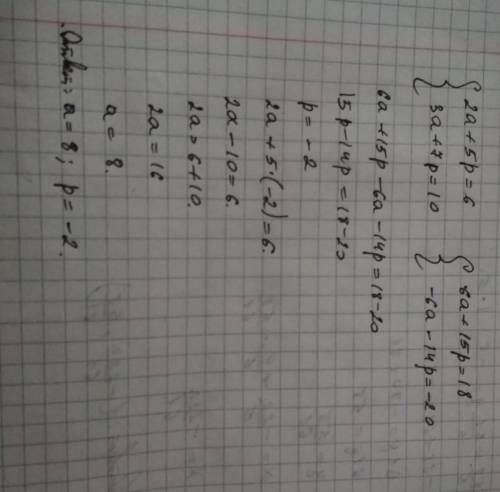 { 2a+5p=6 { 6a+15p=18
{ 3a+7p=10 { -6a-14p=-20
6a+15p-6a-14p=18-20
15p-14p=18-20
p=-2
2a+5·(-2)=6.
2a-10=6.
2a=6+10.
2a=16
a=8.
Ответ: a=8; p=-2.